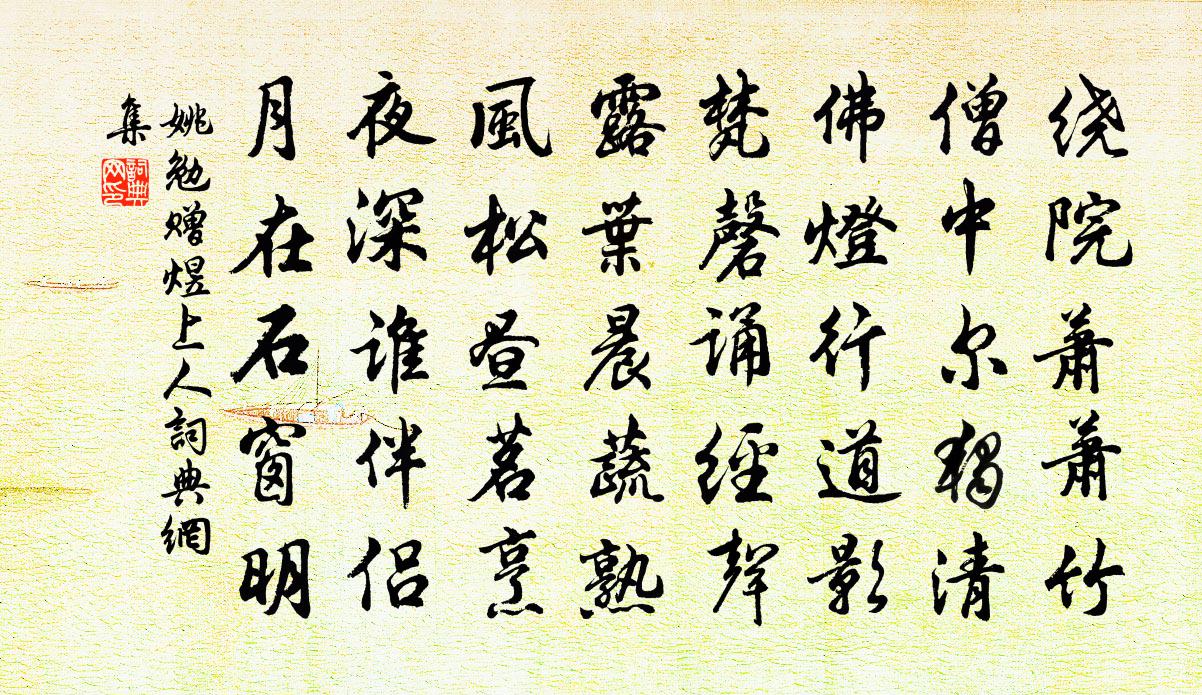 绕院萧萧竹
僧中尔獨清
佛燈行道影
梵磬诵經聲
露葉晨蔬熟
風松昼茗烹
夜深谁伴侣
月在石窗明
姚勉赠煜上人詞典網
集
詞典網印